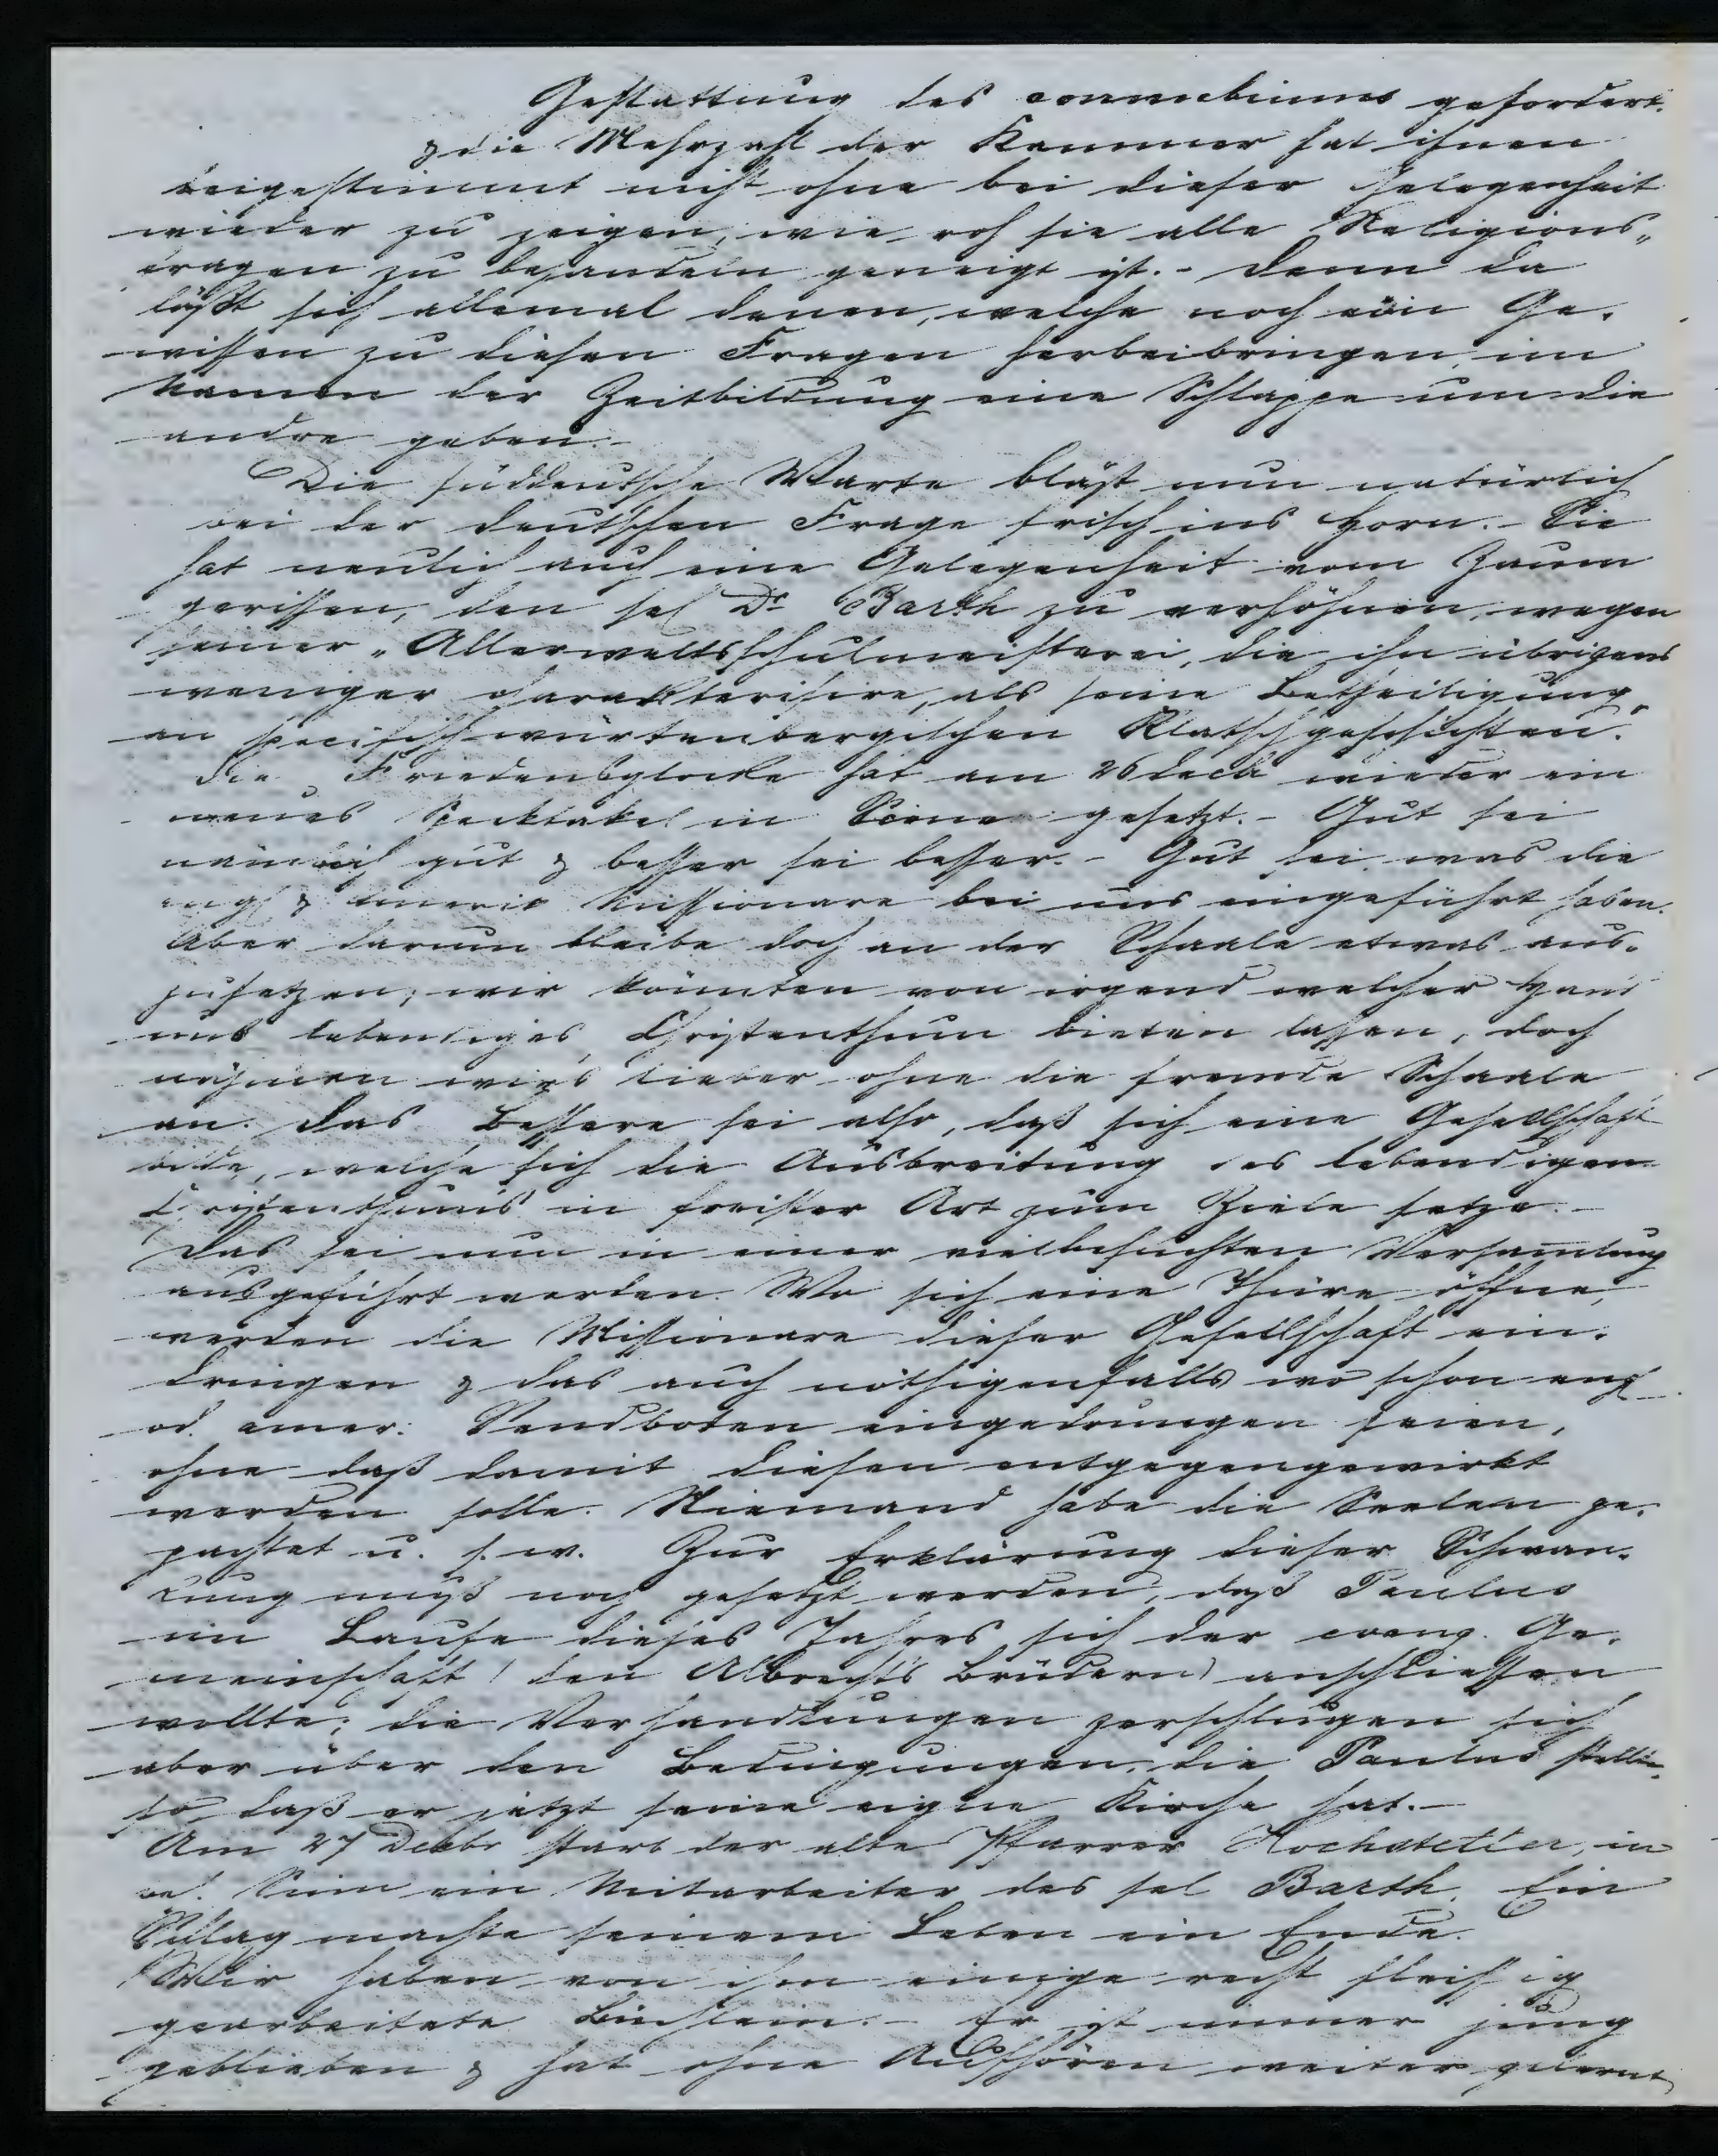 Gestattung des connubiums gefordert.
& die Mehrzahl der Kammer hat ihnen
beigestimmt nicht ohne bei dieser Gelegenheit
wieder zu zeigen, wie roh sie alle Religions„
fragen zu behandeln geneigt ist. - Denn da
läßt sich allemal denen, welche noch ein Ge„
wissen zu diesen Fragen herbeibringen, im
Namen der Zeitbildung eine Schlappe um die
andre geben. -
Die süddeutsche Warte bläst nun natürlich
bei der deutschen Frage frisch ins Horn. - Sie
hat neulich auch eine Gelegenheit vom Zaum
gerissen, den sel Dr Barth zu verhöhnen, wegen
seiner „Allerweltsschulmeisterei, die ihn übrigens
weniger charakterisire, als seine Betheiligung
an specifisch würtenbergischen Klatschgeschichten."
Die Friedensglocke hat am 26 Decb wieder ein
neues Specktakel in Scene gesetzt. - Gut sei
nämlich gut & besser sei besser. - Gut sei was die
engl & americ Missionare bei uns eingeführt haben.
Aber darum bleibe doch an der Schaale etwas aus„
zusetzen; wir könnten von irgend welcher Hand
uns lebendiges Christenthum bieten lassen, doch
nähmen wirs lieber ohne die fremde Schaale
an. Das Bessere sei also, daß sich eine Gesellschaft
bilde, welche sich die Ausbreitung des lebendigen
Christenthums in freister Art zum Ziele setze. -
Das sei nun in einer vielbesuchten Versamlung
ausgeführt worden. Wo sich eine Thüre öffne,
werden die Missionare dieser Gesellschaft ein„
dringen & das auch nöthigenfalls wo schon engl
od. amer. Sendboten eingedrungen seien,
ohne daß damit diesen entgegengewirkt
werden solle. Niemand habe die Seelen ge„
pachtet u. s. w. Zur Erklärung dieser Schwen„
kung muß noch gesetzt werden, daß Paulus
im Laufe dieses Jahres sich der evang. Ge„
meinschaft (den Albrechts Brüdern) anschliessen
wollte; die Verhandlungen zerschlugen sich
aber über den Bedingungen, die Paulus stellte,
so daß er jetzt seine eigne Kirche hat. -
Am 27 Decbr starb der alte Pfarrer Hochstetter, in
Sinn ein Mitarbeiter des sel Barth. Ein
Schlag machte seinem Leben ein Ende.
Wir haben von ihm einige recht fleissig
gearbeitete Büchlein. - Er ist immer jung
geblieben & hat ohne Aufhören weiter gelernt